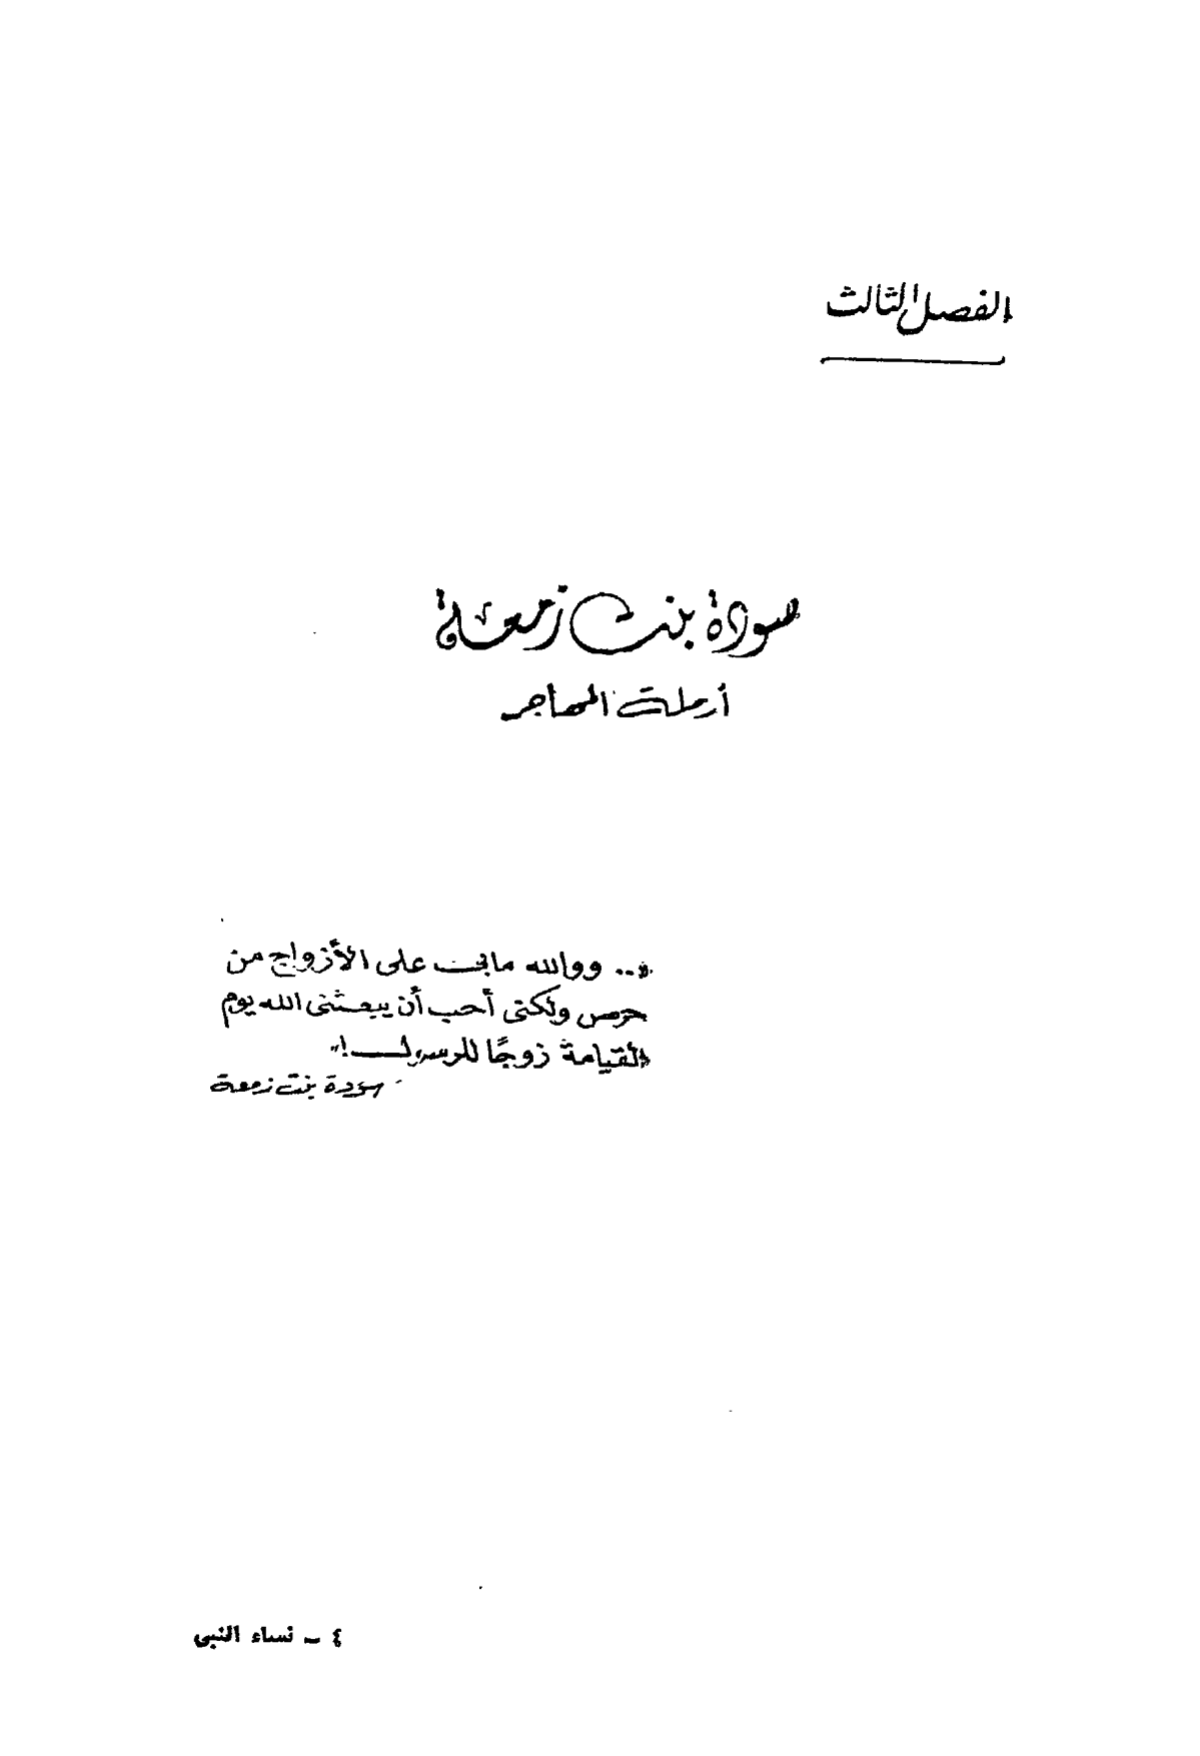 الفصل الثالث
سودة بنت زمعة
أرملة المهاجر
«.. ووالله مابى على الأزواج من
حرص ولكنى أحب أن يبعثنى الله يوم
القيامة زوجًا للرسول!»
سودة بنت زمعة
٤ – نساء النبى